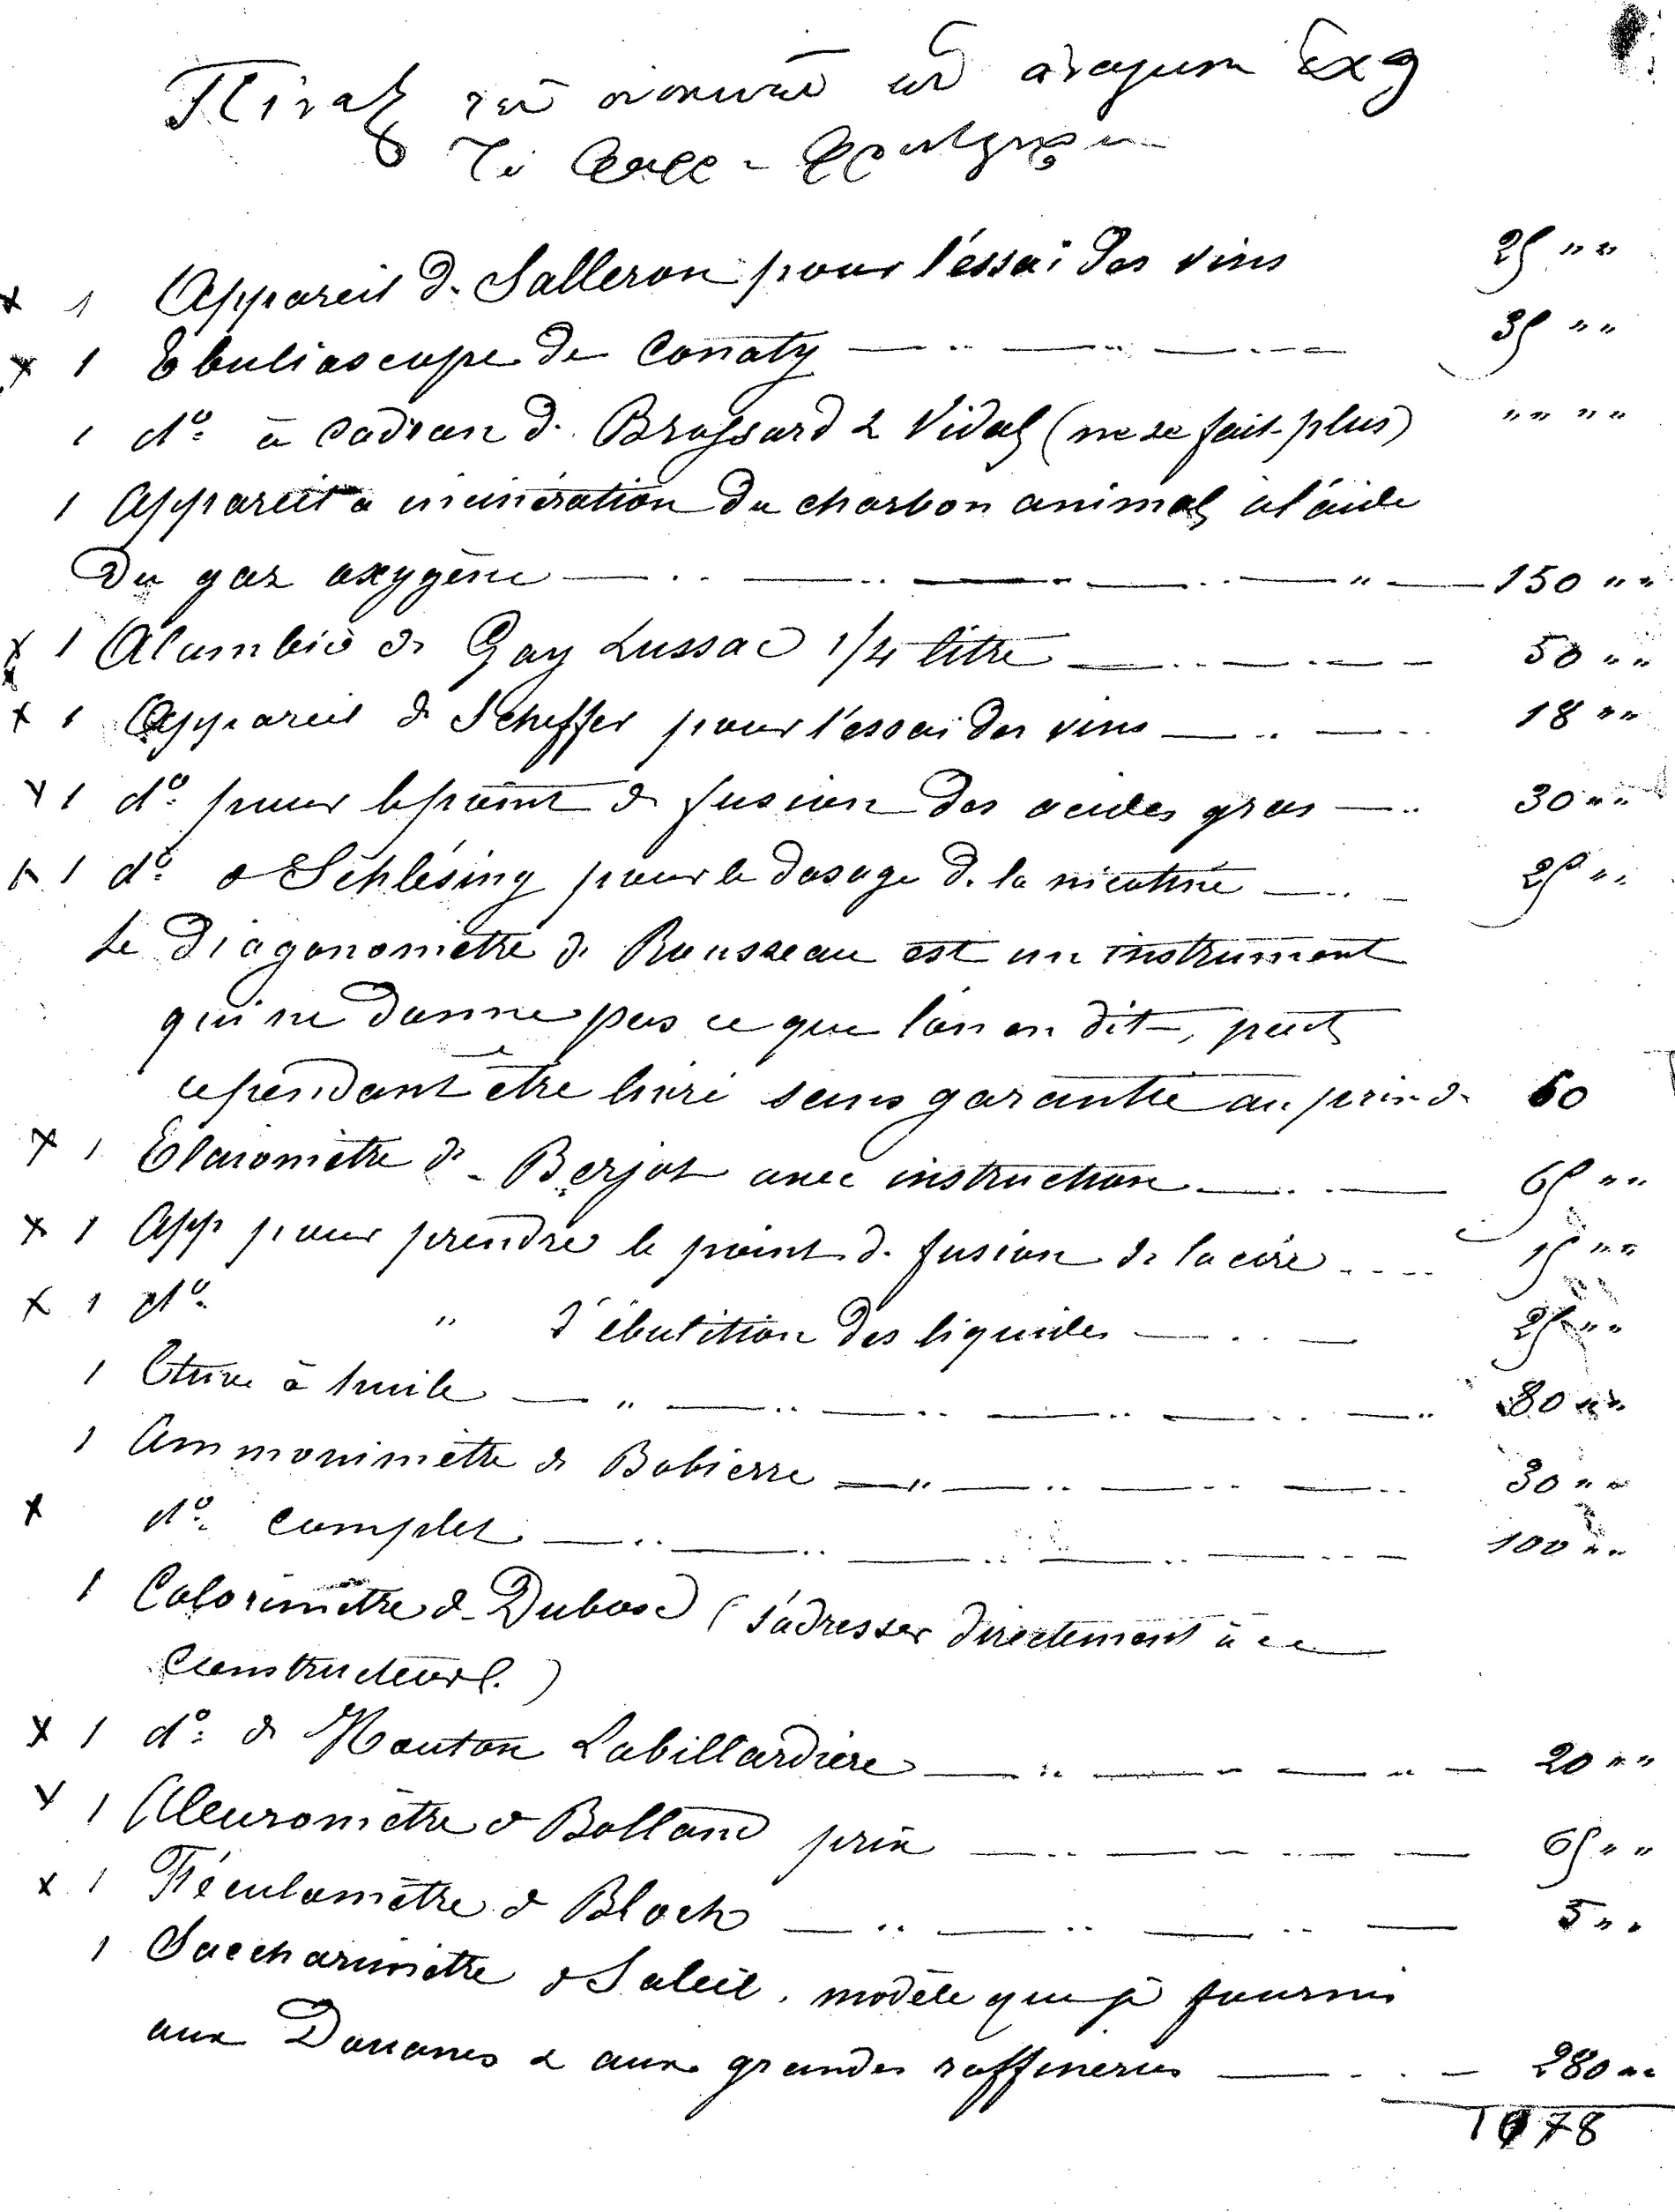 x 1 Appareil de Salleron pour l'éssai des vins 25 " "
x 1 Ebulioscope de Conaty 35 " "
1 d° à Cadran de Brossard & Vidal (ne se fait plus) " " " "
1 Appareil a incinération du charbon animal à l'aide
Du gaz oxygène 150 " "
x 1 Alambic de Gay Lussac 1/4 litre 50 " "
x 1 Appareil de Scheffer pour l'essai des vins 18 " "
x 1 d° pour le point de fusion des acides gras 30 " "
x 1 d° de Schlésing pour le dosage de la nicotine 25 " "
Le Diagonomètre de Rousseau est un instrument
qui ne donne pas ce que l'on en dit, peut
cependant être livré sans garantie au prix de 60
x 1 Elaiomètre de Berjot avec instruction 65 " "
x 1 App pour prendre le point de fusion de la cire 15 " "
x 1 d° " d'ébulition des liquides 25 " "
1 Etuve à huile 80 " "
1 Ammonimètre de Bobierre 30 " "
x d° complet 100 " "
1 Colorimètre de Dubosc (s'adresser directement à ce
Constructeur.)
x 1 d° de Houton Labillardière 20 " "
x 1 Aleuromètre de Bolland prix 65 " "
x 1 Féculomètre de Bloch 5 " "
1 Saccharimètre de Soleil, modèle que je fournis
aux Douanes & aux grandes raffineries 280 " "
1078